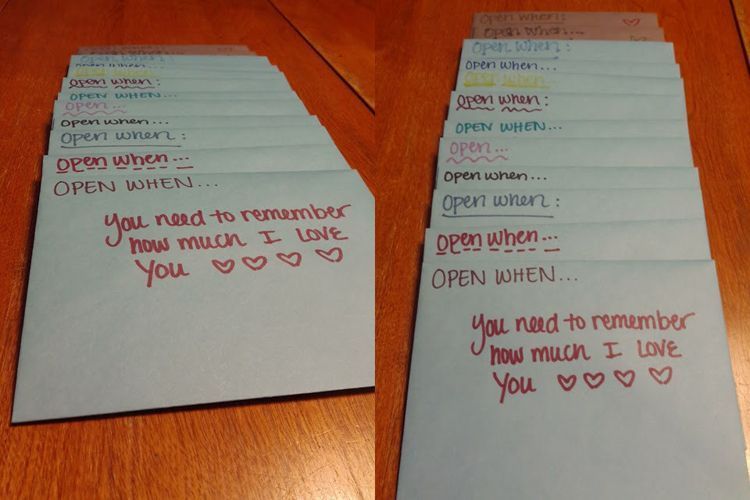 Open When:
Open when:
OPEN When...
OPEN WHEN...
Open when:
OPEN WHEN...
Open ...
Open when...
Open when:
Open when...
OPEN WHEN...
You need to remember
how much I LOVE
You ♡ ♡ ♡ ♡
Open When:
Open When...
Open When:
OPEN When...
OPEN WHEN...
Open when:
OPEN WHEN...
Open ...
Open when...
Open when:
Open when...
OPEN WHEN...
You need to remember
how much I LOVE
You ♡ ♡ ♡ ♡